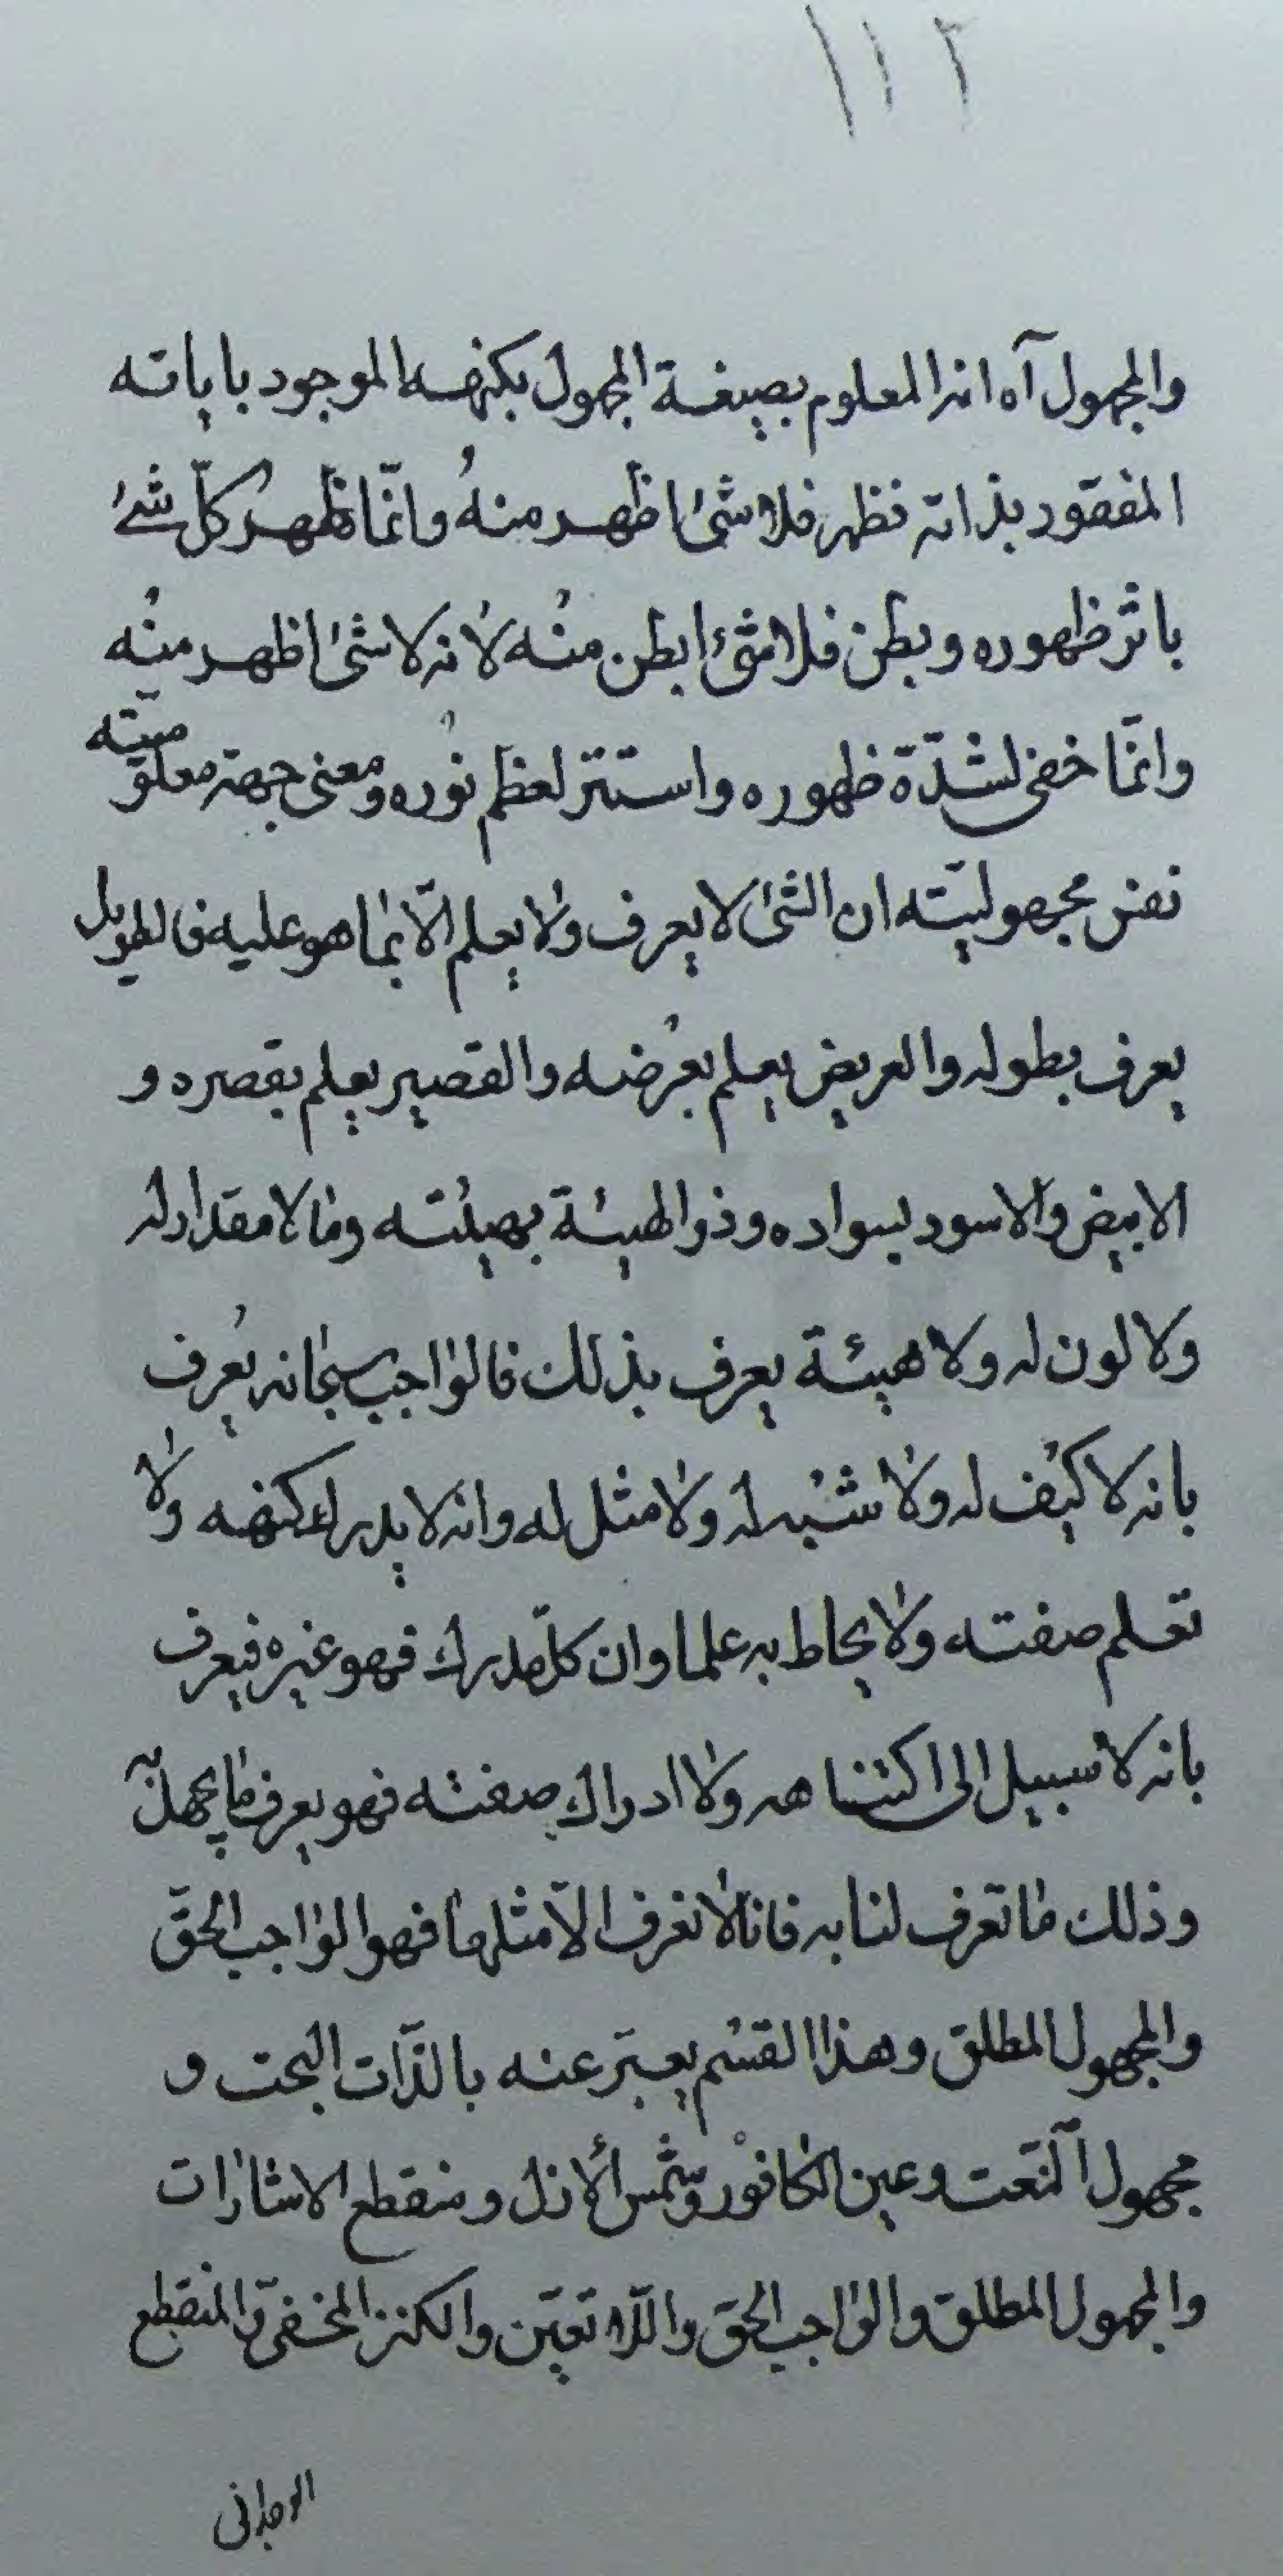 ١١٢
والمجهول آه انه المعلوم بصيغة المجهول بكنهه الموجود باياته
المفقود بذاته فظهر فلا شئ اظهر منه وانّما ظهر كلّ شئ
باثر ظهوره وبطن فلا شئ ابطن منه لانه لا شئ اظهر منه
وانّما خفى لشدّة ظهوره واستتر لعظم نوره ومعنى جهة معلوميّته
نفس مجهوليّته ان الشئ لا يعرف ولا يعلم الّا بما هو عليه فالطويل
يعرف بطوله والعريض يعلم بعرضه والقصير يعلم بقصره و
الابيض والاسود بسواده وذو الهيئة بهيئته وما لا مقدار له
ولا لون له ولا هيئة يعرف بذلك فالواجب سبحانه يعرف
بانه لا كيف له ولا شبه له ولا مثل له وانه لا يدرك كنهه ولا
تعلم صفته ولا يحاط به علما وان كلّ مدرك فهو غيره فيعرف
بانه لا سبيل الى اكتناهه ولا ادراك صفته فهو يعرف بما يجهل به
وذلك ما تعرف لنا به فانا لا نعرف الّا مثلها فهو الواجب الحقّ
والمجهول المطلق وهذا القسم يعبّر عنه بالذّات البحت و
مجهول النّعت وعين الكافور وشمس الأزل ومنقطع الاشارات
والمجهول المطلق والواجب الحق واللّا تعيّن والكنز المخفىّ والمنقطع
الوجدانى